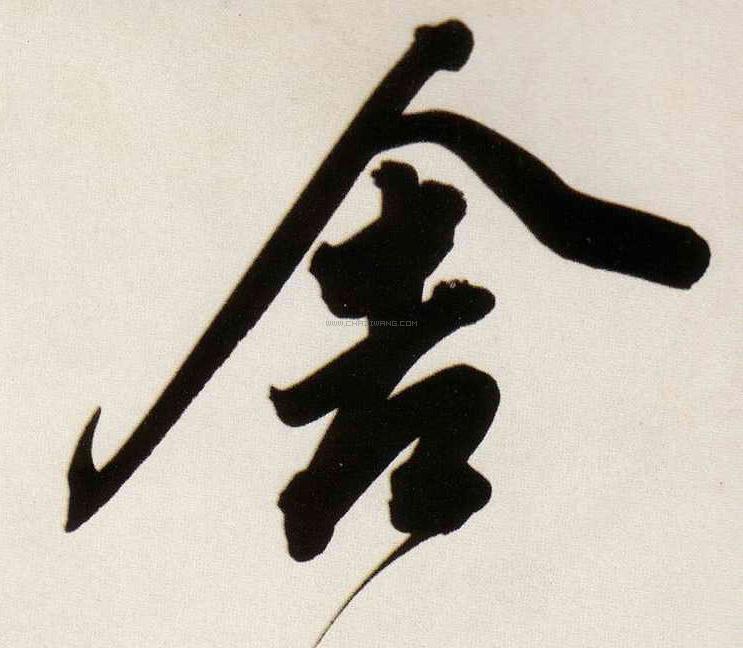 舍
WWW.CHAZIWANG.COM